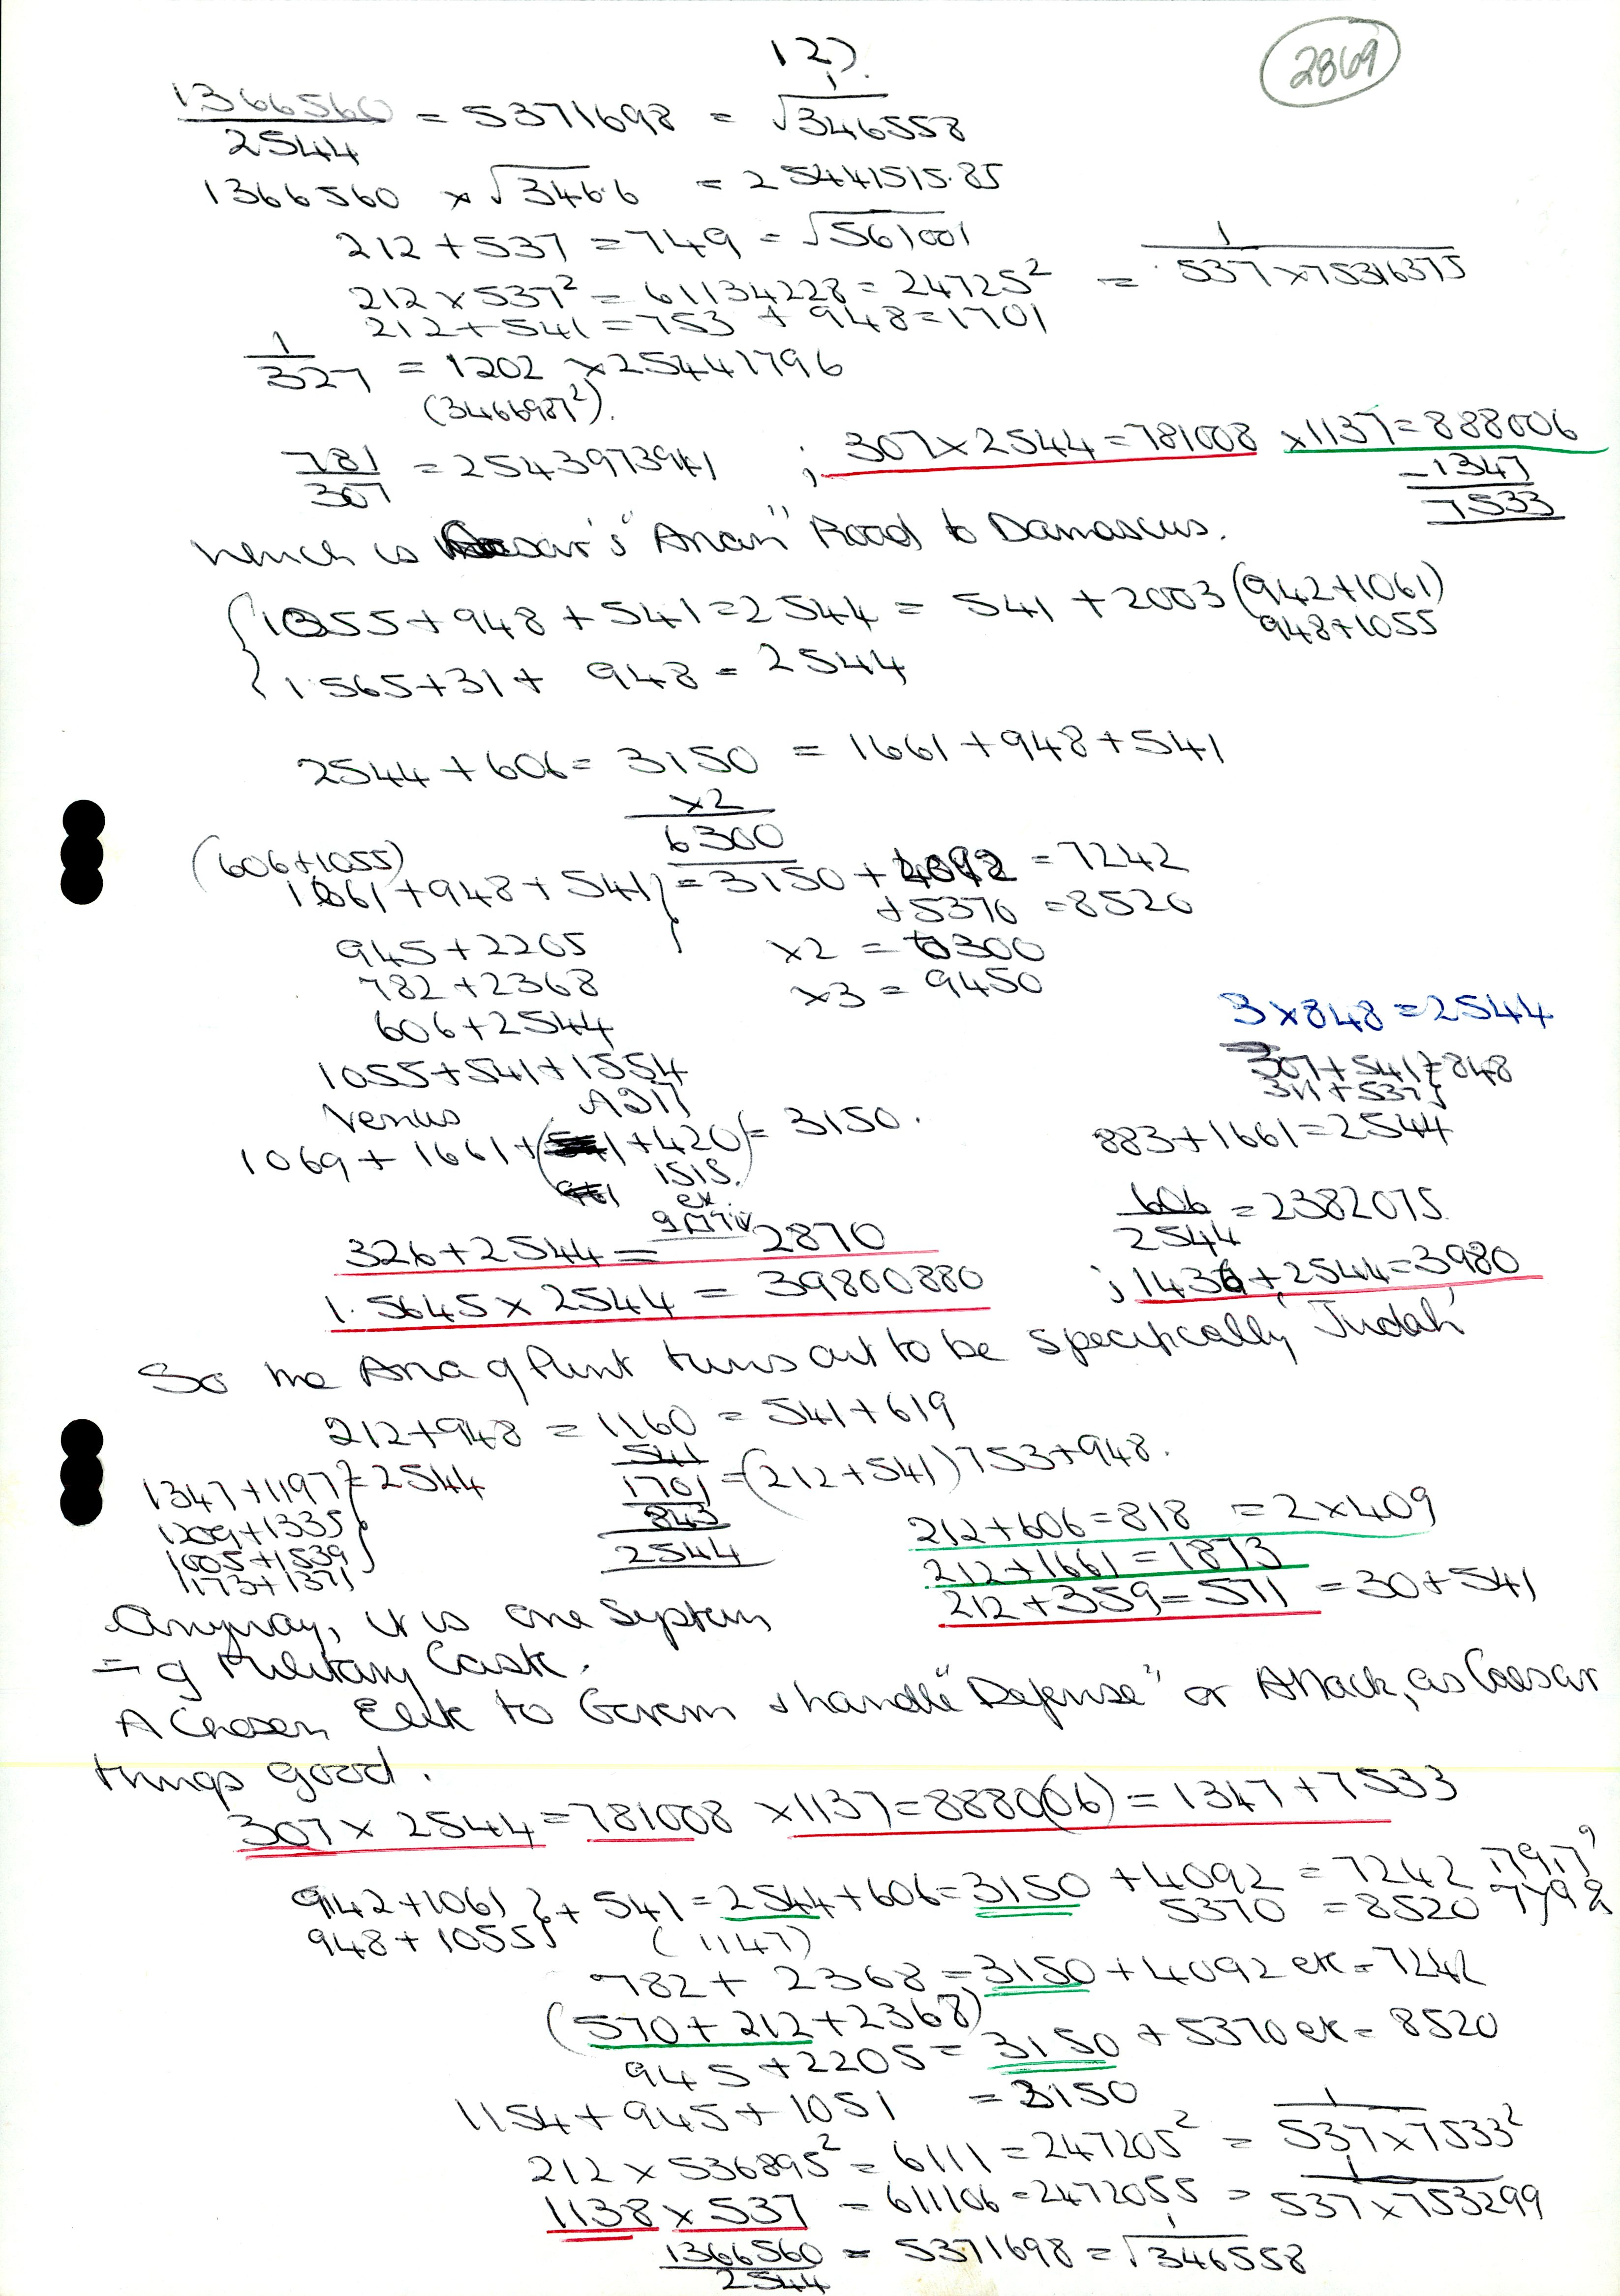 12).
2869
1366560 / 2544 = 5371698 = 1 / √346558
1366560 × √346.6 = 25441515.85
212 + 537 = 749 = √561001
212 × 537² = 61134228 = 24725² = 1 / 537 × 75316375
212 + 541 = 753 + 948 = 1701
1 / 327 = 1202 × 25441796
(3466987²).
781 / 307 = 2543973941 ; 307 × 2544 = 781008 × 1137 = 888006
- 1347
7533
hence is Caesar's "Arian" Road to Damascus.
1055 + 948 + 541 = 2544 = 541 + 2003 (942 + 1061)
948 + 1055
1.565 + 31 + 948 = 2544
2544 + 606 = 3150 = 1661 + 948 + 541
×2
6300
(606 + 1055)
1661 + 948 + 541 } = 3150 + 4092 = 7242
+ 5370 = 8520
945 + 2205 ×2 = 6300
782 + 2368 ×3 = 9450
606 + 2544
3 × 848 = 2544
1055 + 541 + 1554
307 + 541 } = 848
311 + 537 }
Venus
1069 + 1661 + ( + 420) = 3150.
883 + 1661 = 2544
ISIS.
ex.
606 / 2544 = 2382075
326 + 2544 = 2870
; 1436 + 2544 = 3980
1.5645 × 2544 = 39800880
So the Aria of Punt turns out to be specifically 'Judah'
212 + 948 = 1160 = 541 + 619
541
1701 = (212 + 541) 753 + 948.
843
2544
1347 + 1197 } = 2544
1209 + 1335
1005 + 1539
1173 + 1371
212 + 606 = 818 = 2 × 409
212 + 1661 = 1873
212 + 359 = 571 = 30 + 541
Anyway, it is one System
= of Military Caste.
A Chosen Elite to Govern & handle "Defense" or Attack, as Caesar
things good.
307 × 2544 = 781008 × 1137 = 8880(06) = 1347 + 7533
942 + 1061 } + 541 = 2544 + 606 = 3150 + 4092 = 7242
948 + 1055 } (1147) 5370 = 8520
782 + 2368 = 3150 + 4092 ex = 7242
(570 + 212 + 2368)
945 + 2205 = 3150 + 5370 ex = 8520
1154 + 945 + 1051 = 3150
212 × 536895² = 6111 = 247205² = 1 / 537 × 7533²
1138 × 537 = 611106 = 2472055 = 1 / 537 × 753299
1366560 / 2544 = 5371698 = 1 / √346558